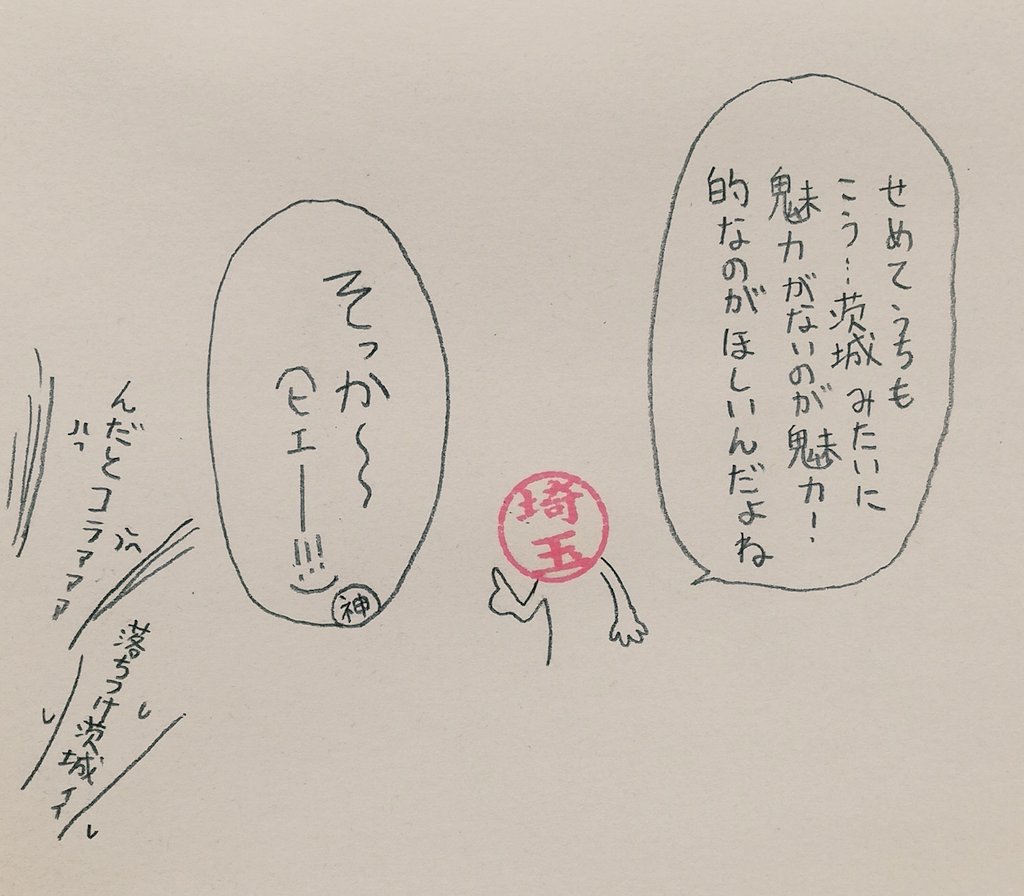 せめてうちも
こう…茨城みたいに
魅力がないのが魅力!
的なのがほしいんだよね
埼
玉
そっか〜〜
(ヒエー!!!)
神
んだとコラァァァ
落ちつけ茨城ィィ